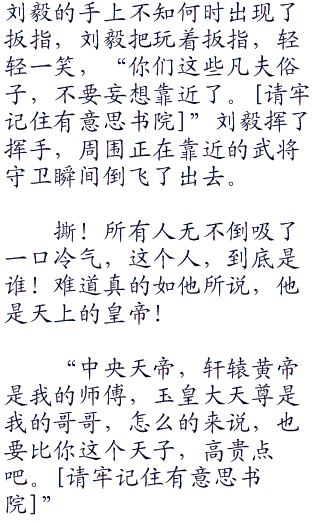 刘毅的手上不知何时出现了
扳指，刘毅把玩着扳指，轻
轻一笑，“你们这些凡夫俗
子，不要妄想靠近了。[请牢
记住有意思书院]”刘毅挥了
挥手，周围正在靠近的武将
守卫瞬间倒飞了出去。
撕！所有人无不倒吸了
一口冷气，这个人，到底是
谁！难道真的如他所说，他
是天上的皇帝！
“中央天帝，轩辕黄帝
是我的师傅，玉皇大天尊是
我的哥哥，怎么的来说，也
要比你这个天子，高贵点
吧。[请牢记住有意思书
院]”